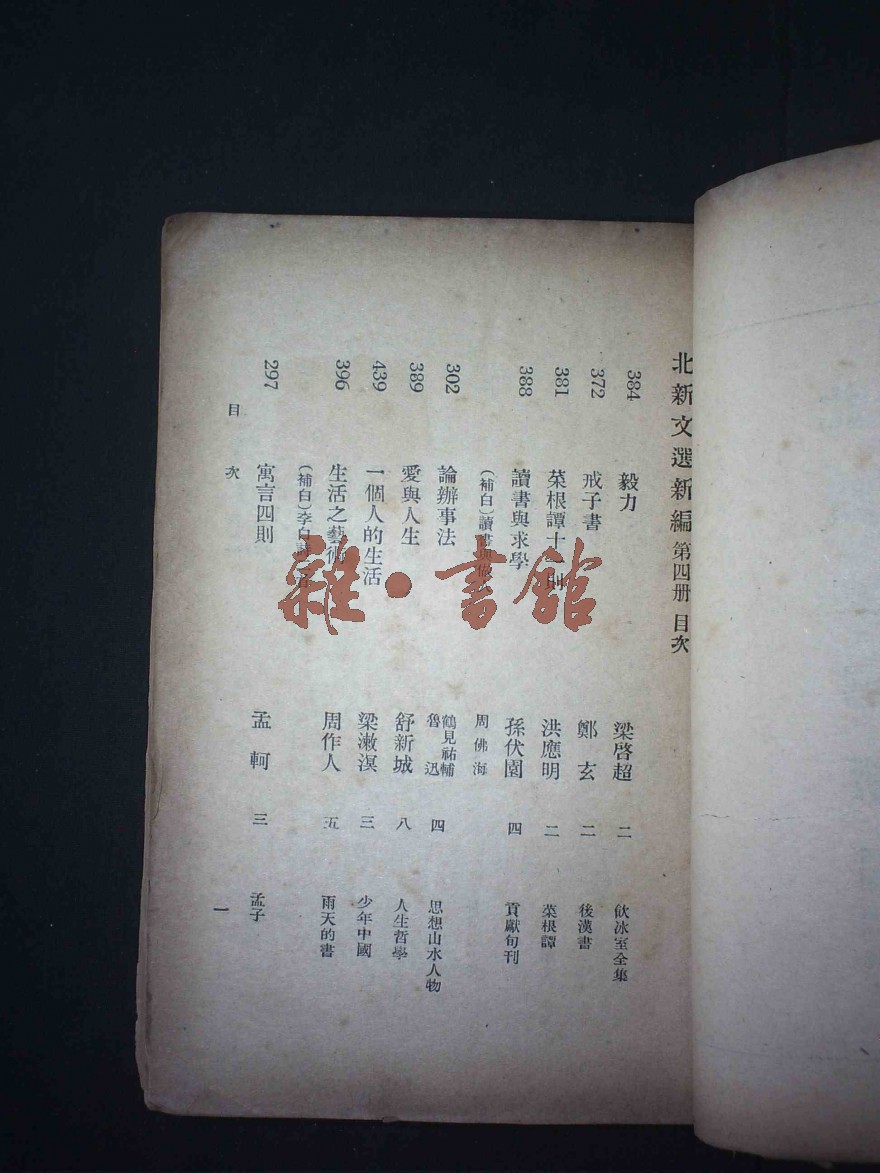 北新文選新編 第四册 目次
384 毅力 梁啓超 二 飲冰室全集
372 戒子書 鄭玄 二 後漢書
381 菜根譚十 則 洪應明 二 菜根譚
388 讀書與求學 孫伏園 四 貢獻旬刊
(補白)讀書 周佛海
302 論辦事法 鶴見祐輔 魯迅 四 思想山水人物
389 愛與人生 舒新城 八 人生哲學
439 一個人的生活 梁漱溟 三 少年中國
396 生活之藝術 周作人 五 雨天的書
(補白)李白詩
297 寓言四則 孟軻 三 孟子
目次
一
雜·書館